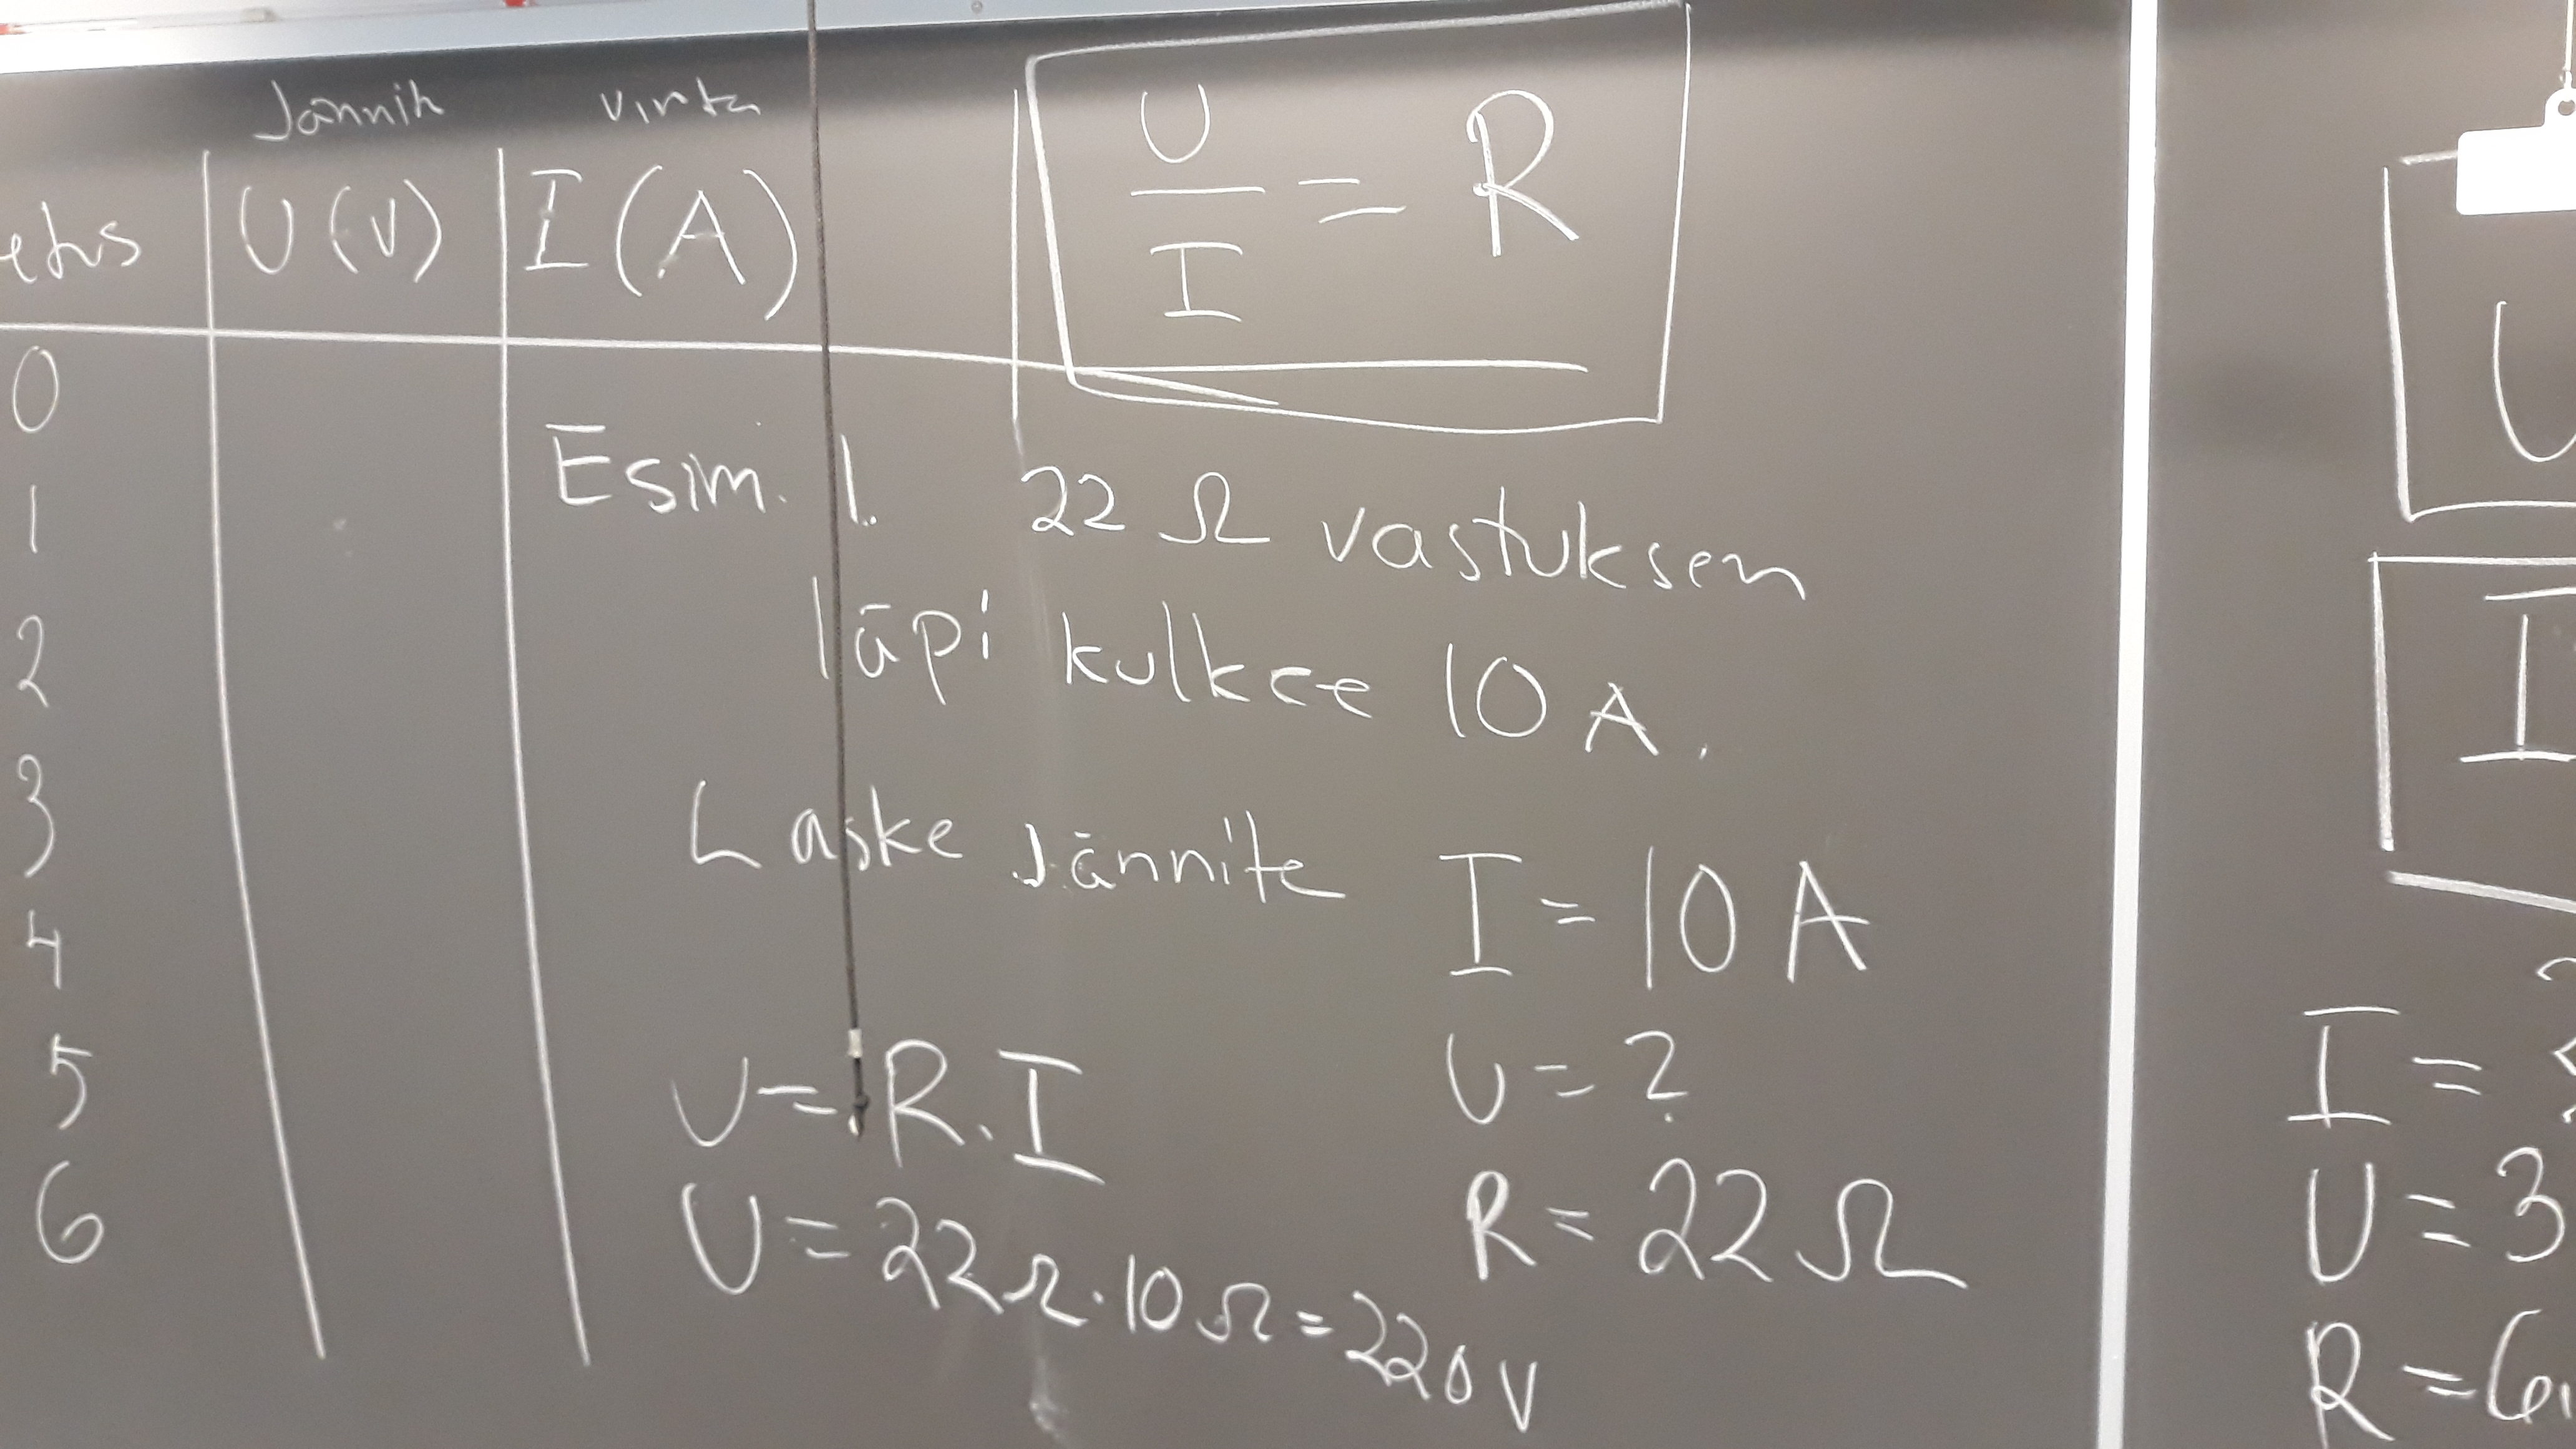 Jännite virta
U (V) I (A)
0
1
2
3
4
5
6
U/I = R
Esim. 1. 22 Ω vastuksen
läpi kulkee 10 A.
Laske jännite
I = 10 A
U = ?
R = 22 Ω
U = R · I
U = 22 Ω · 10 Ω = 220 V
U
I
I =
U = 3